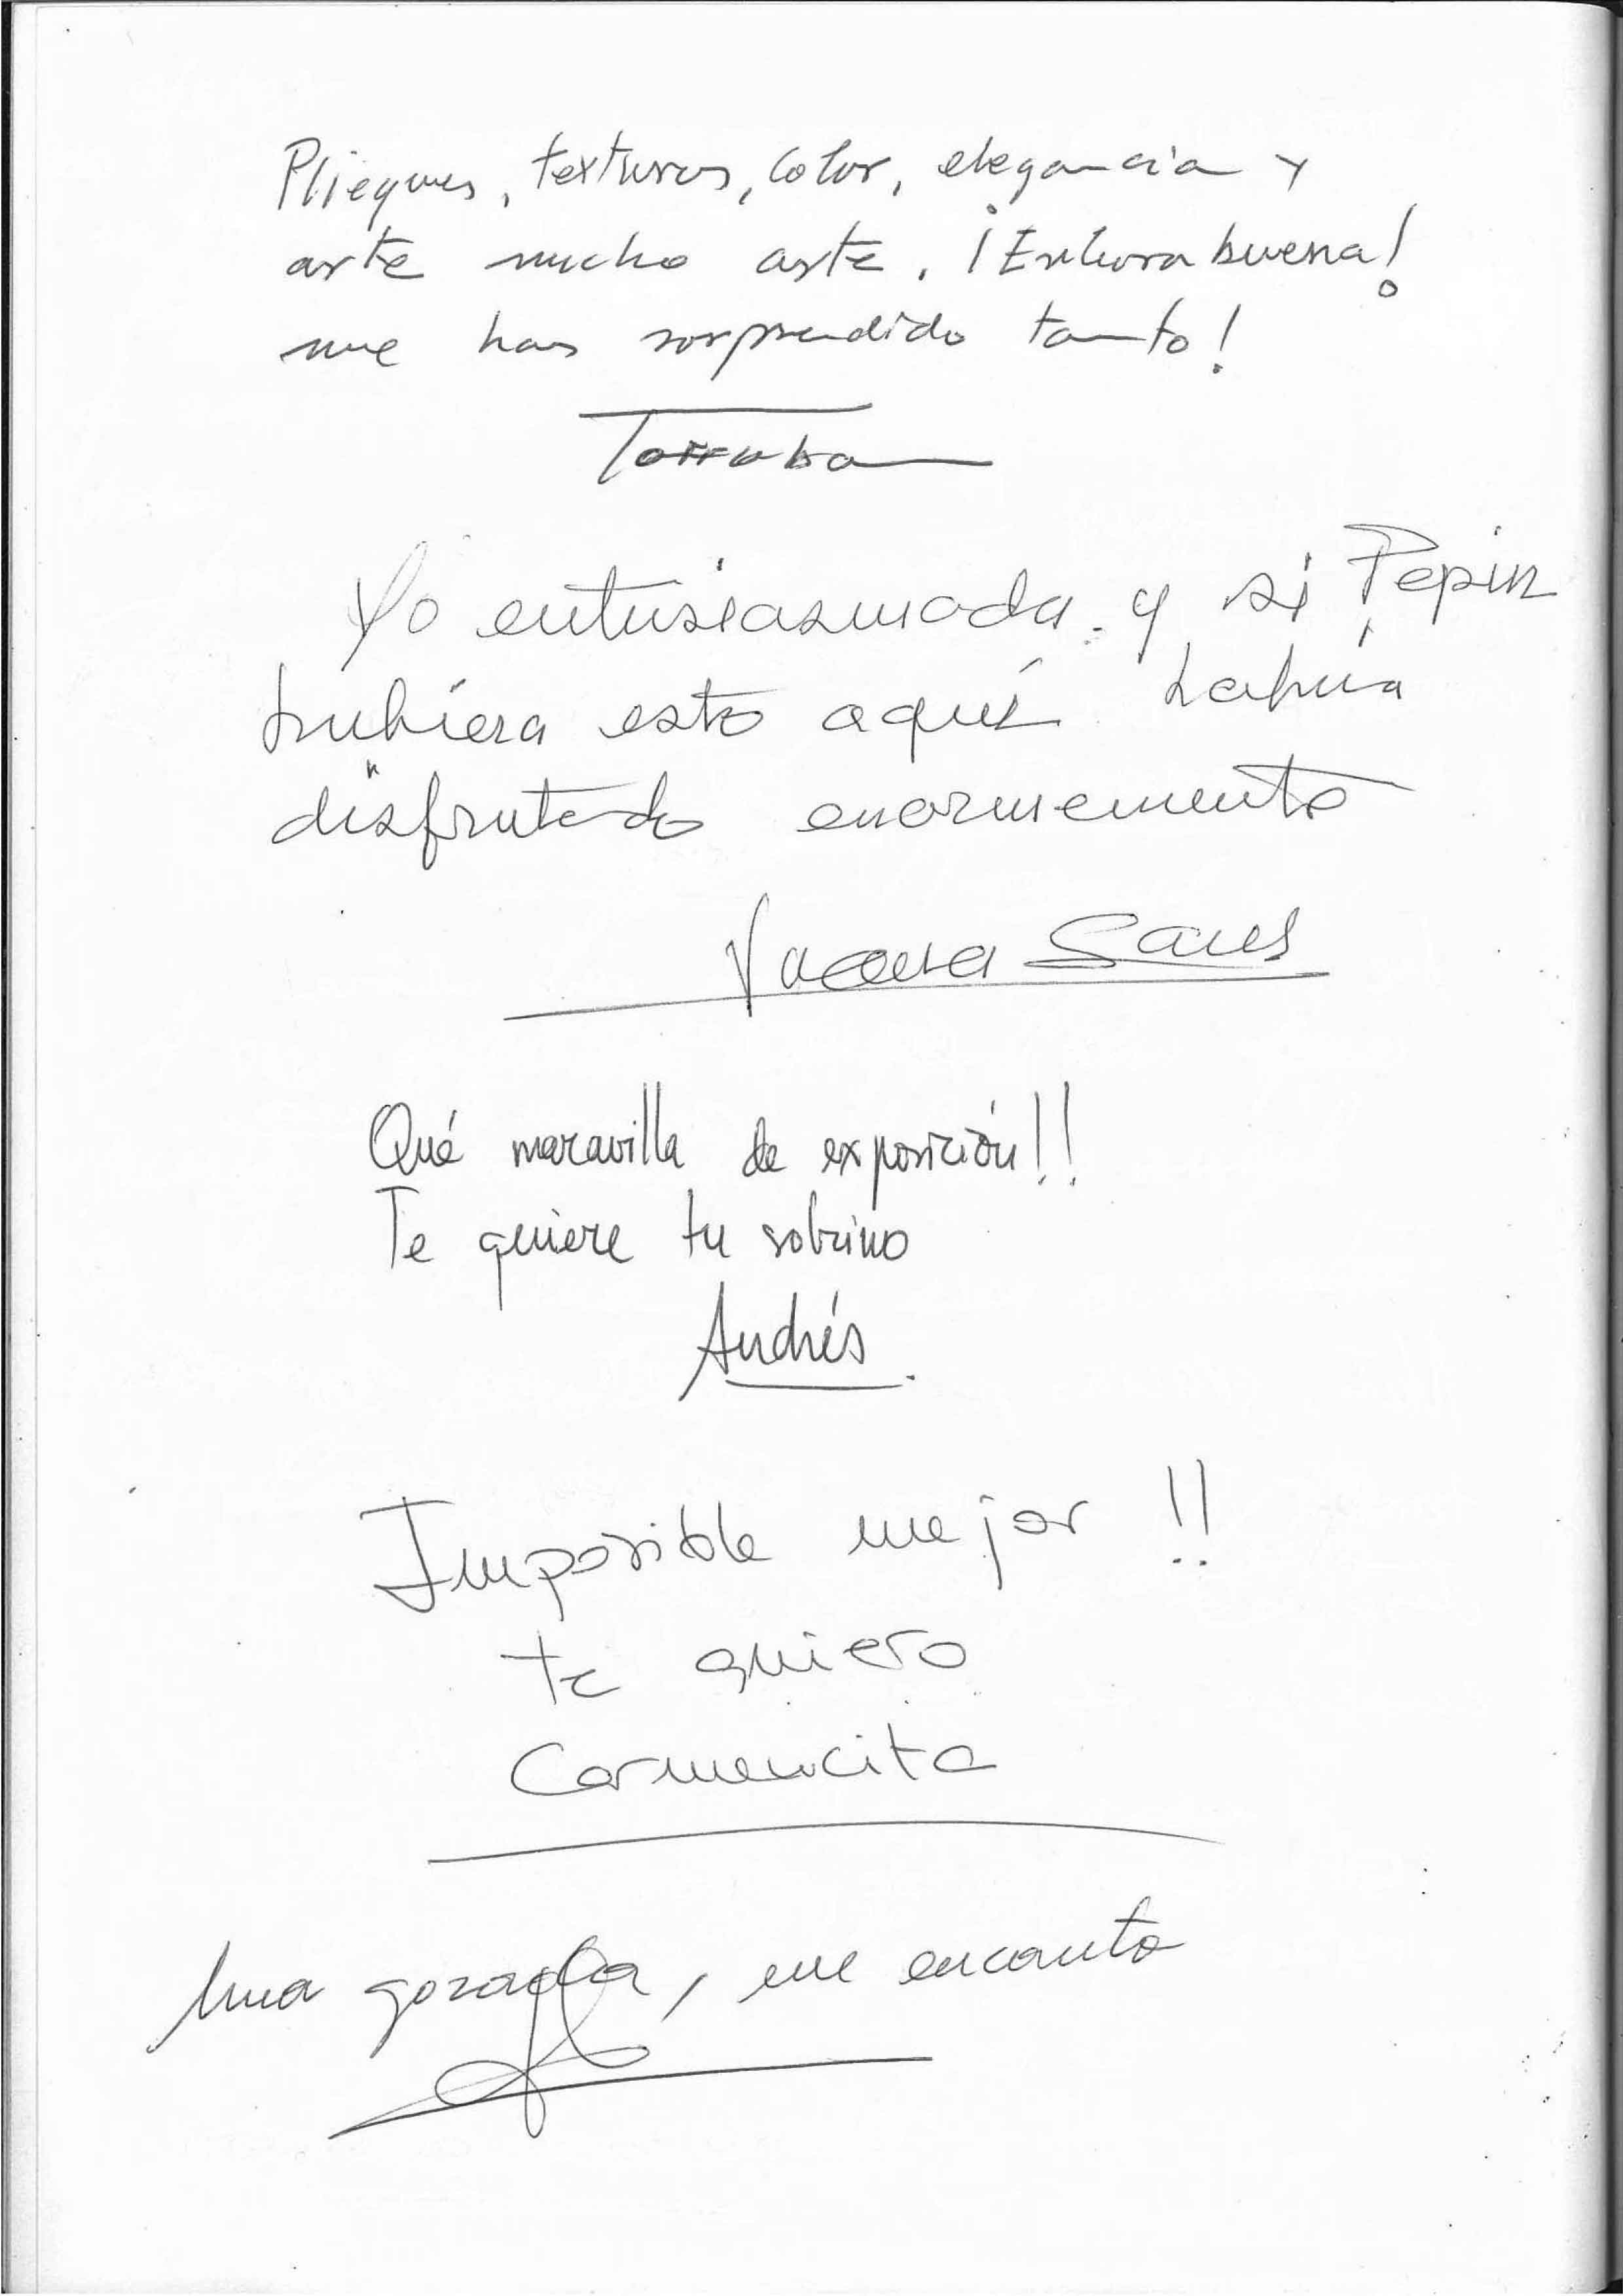 Pliegues, texturas, color, elegancia y
arte mucho arte. ¡Enhorabuena!
me has sorprendido tanto!
Torralba
Yo entusiasmada. y si Pepin
hubiera esto aquí habría
disfrutado enormemente
Sans
Qué maravilla de exposición!!
Te quiere tu sobrino
Andrés.
Imposible mejor!!
te quiero
Carmencita
Una gozada, me encanta